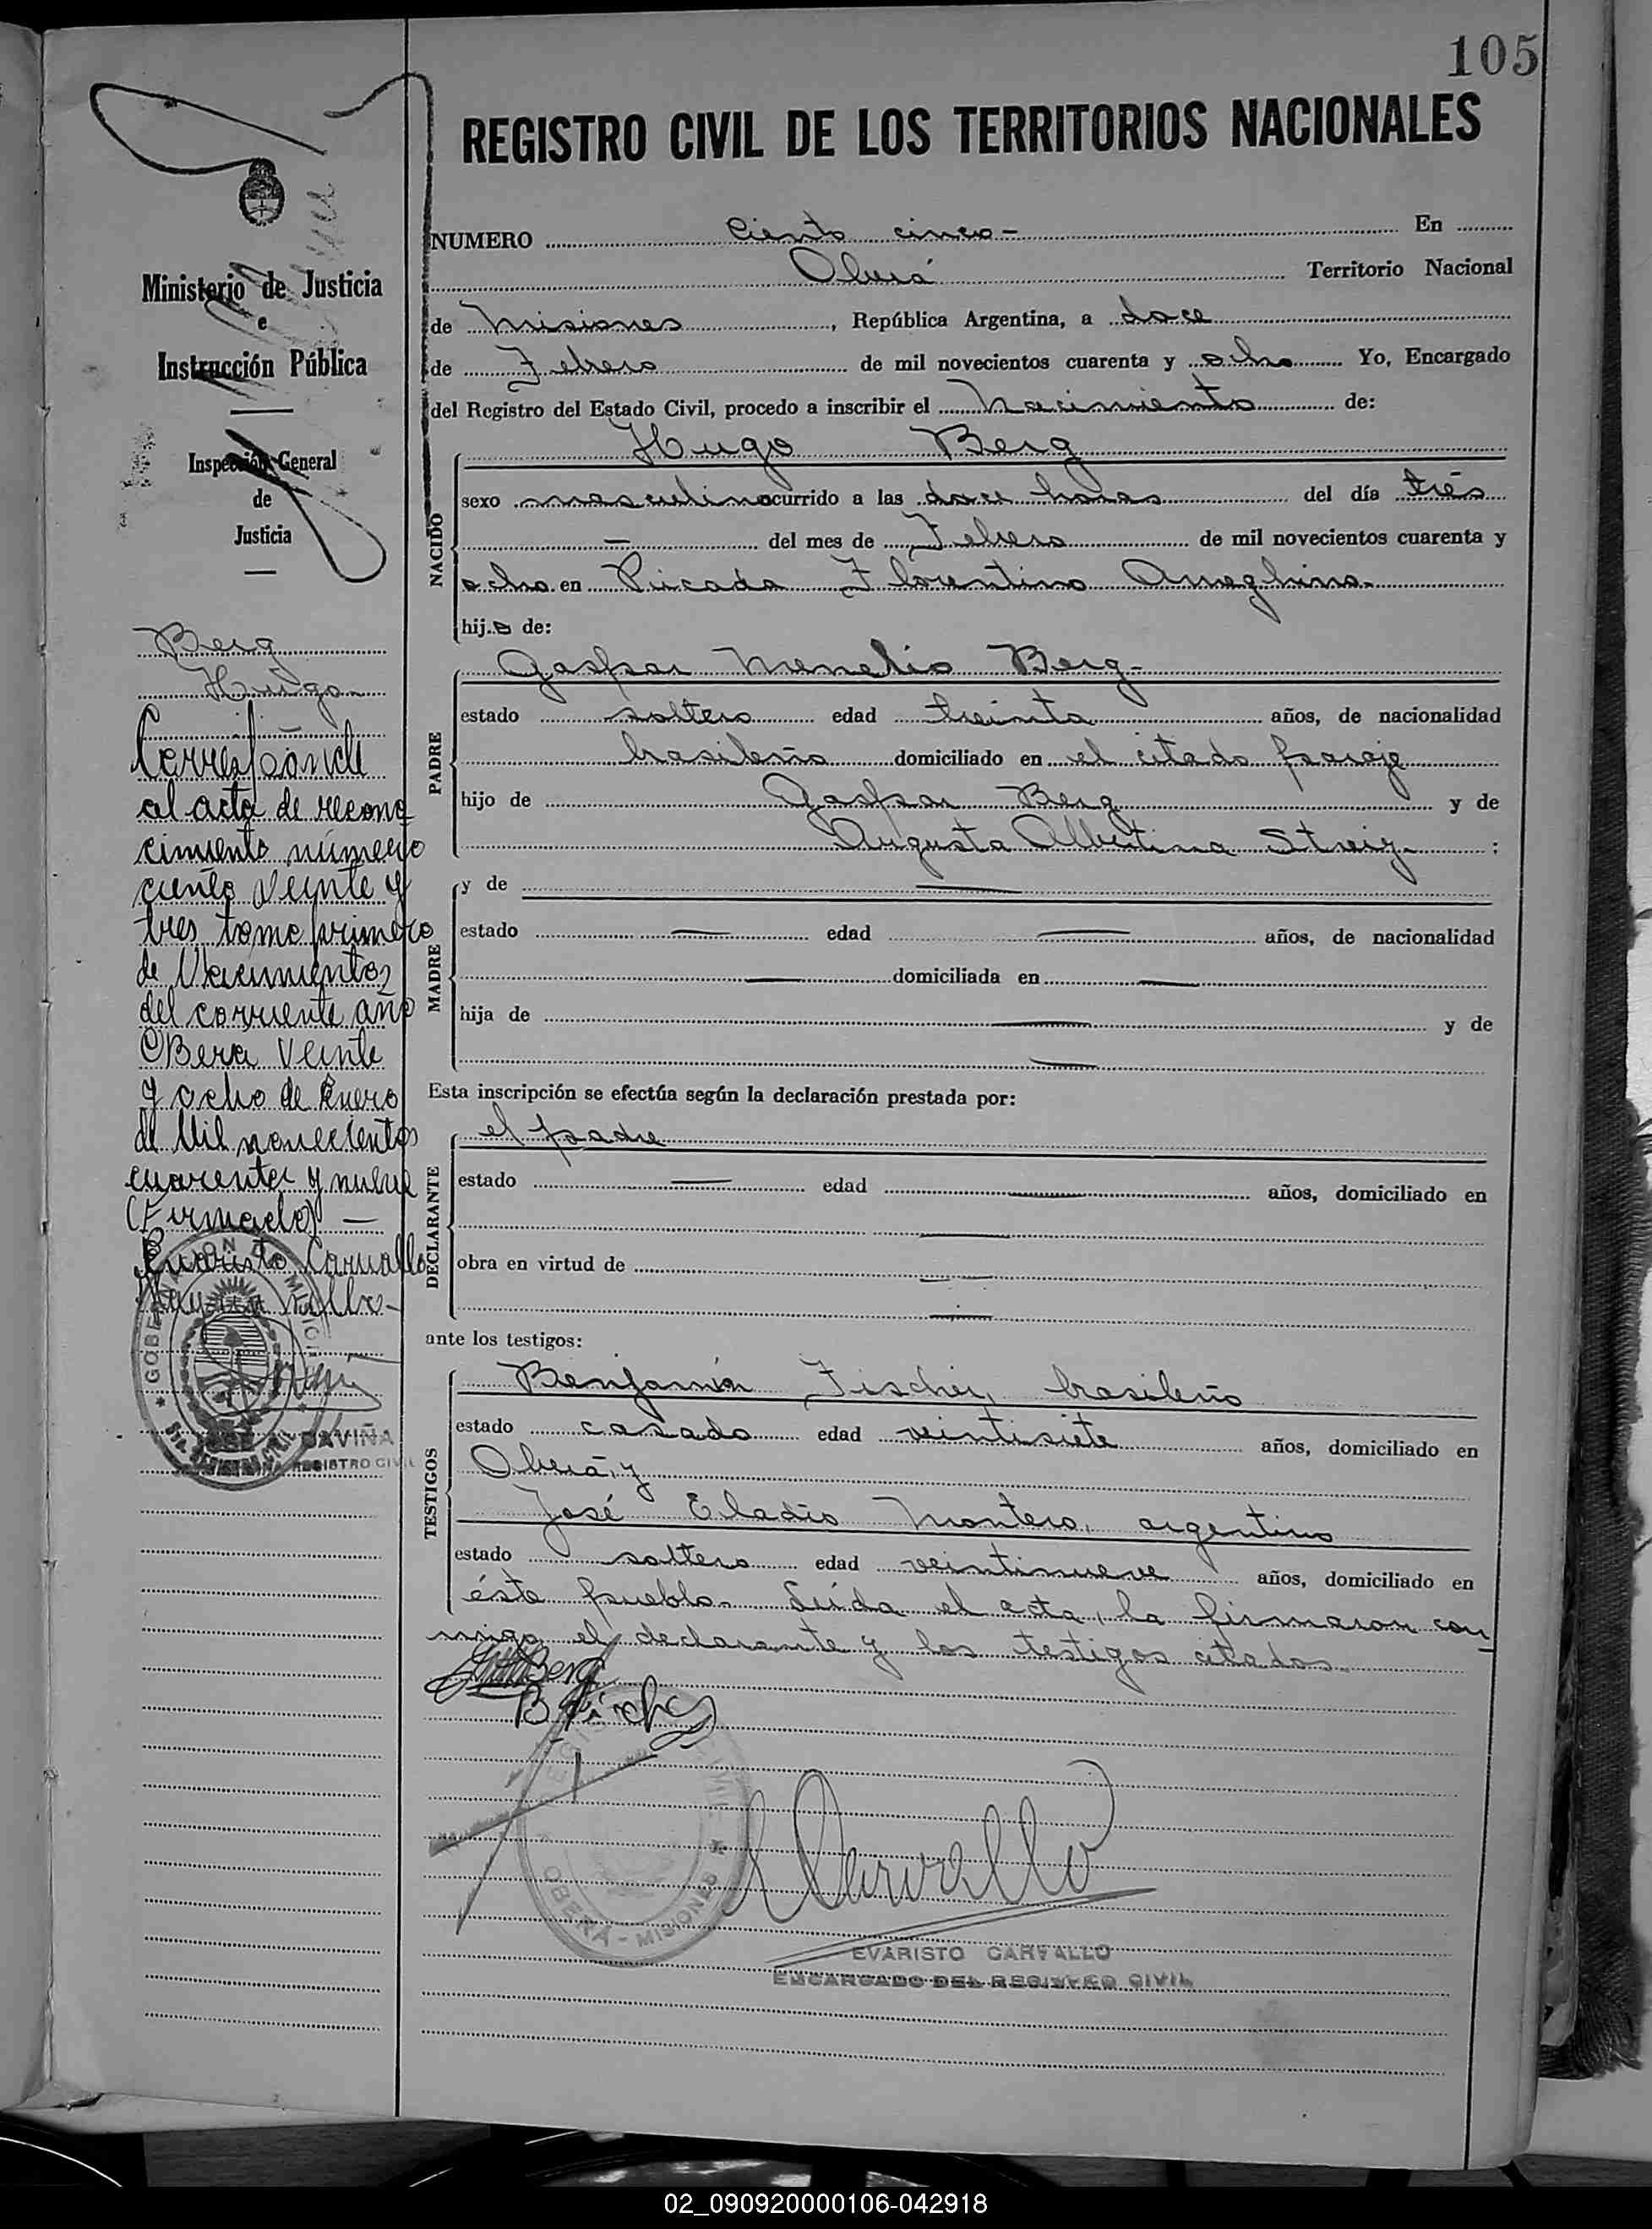 105
REGISTRO CIVIL DE LOS TERRITORIOS NACIONALES
NUMERO Ciento cinco- En
Oberá Territorio Nacional
de Misiones, República Argentina, a doce
de Febrero de mil novecientos cuarenta y ocho Yo, Encargado
del Registro del Estado Civil, procedo a inscribir el Nacimiento de:
NACIDO
Hugo Berg
sexo masculino ocurrido a las doce horas del día trés
— del mes de Febrero de mil novecientos cuarenta y
ocho en Picada Florentino Ameghino.
hijo de:
PADRE
Gaspar Menelio Berg-
estado soltero edad treinta años, de nacionalidad
brasileño domiciliado en el citado paraje
hijo de Gaspar Berg y de
Augusta Albertina :
MADRE
y de —
estado — edad — años, de nacionalidad
— domiciliada en —
hija de — y de
—
Esta inscripción se efectúa según la declaración prestada por:
DECLARANTE
el padre
estado — edad — años, domiciliado en
—
obra en virtud de —
—
ante los testigos:
TESTIGOS
Benjamín Fischer, brasileño
estado casado edad veintisiete años, domiciliado en
Oberá, y
José Eladio Montero, argentino
estado soltero edad veintinueve años, domiciliado en
éste pueblo. Leída el acta, la firmaron con-
migo el declarante y los testigos citados.
Berg
B Fischer
Carvallo
OBERÁ - MISIONES
EVARISTO CARVALLO
ENCARGADO DEL REGISTRO CIVIL
Ministerio de Justicia
e
Instrucción Pública
Inspección General
de
Justicia
Berg
Hugo
Corresponde
al acta de recono
cimiento número
ciento veinte y
tres tomo primero
de Nacimientos
del corriente año
OBera veinte
y ocho de Enero
de Mil novecientos
cuarenta y nueve
(Firmado) —
Evaristo Carvallo
GOBERNACION DE MISIONES
DAVIÑA
REGISTRO CIVIL
02_090920000106-042918